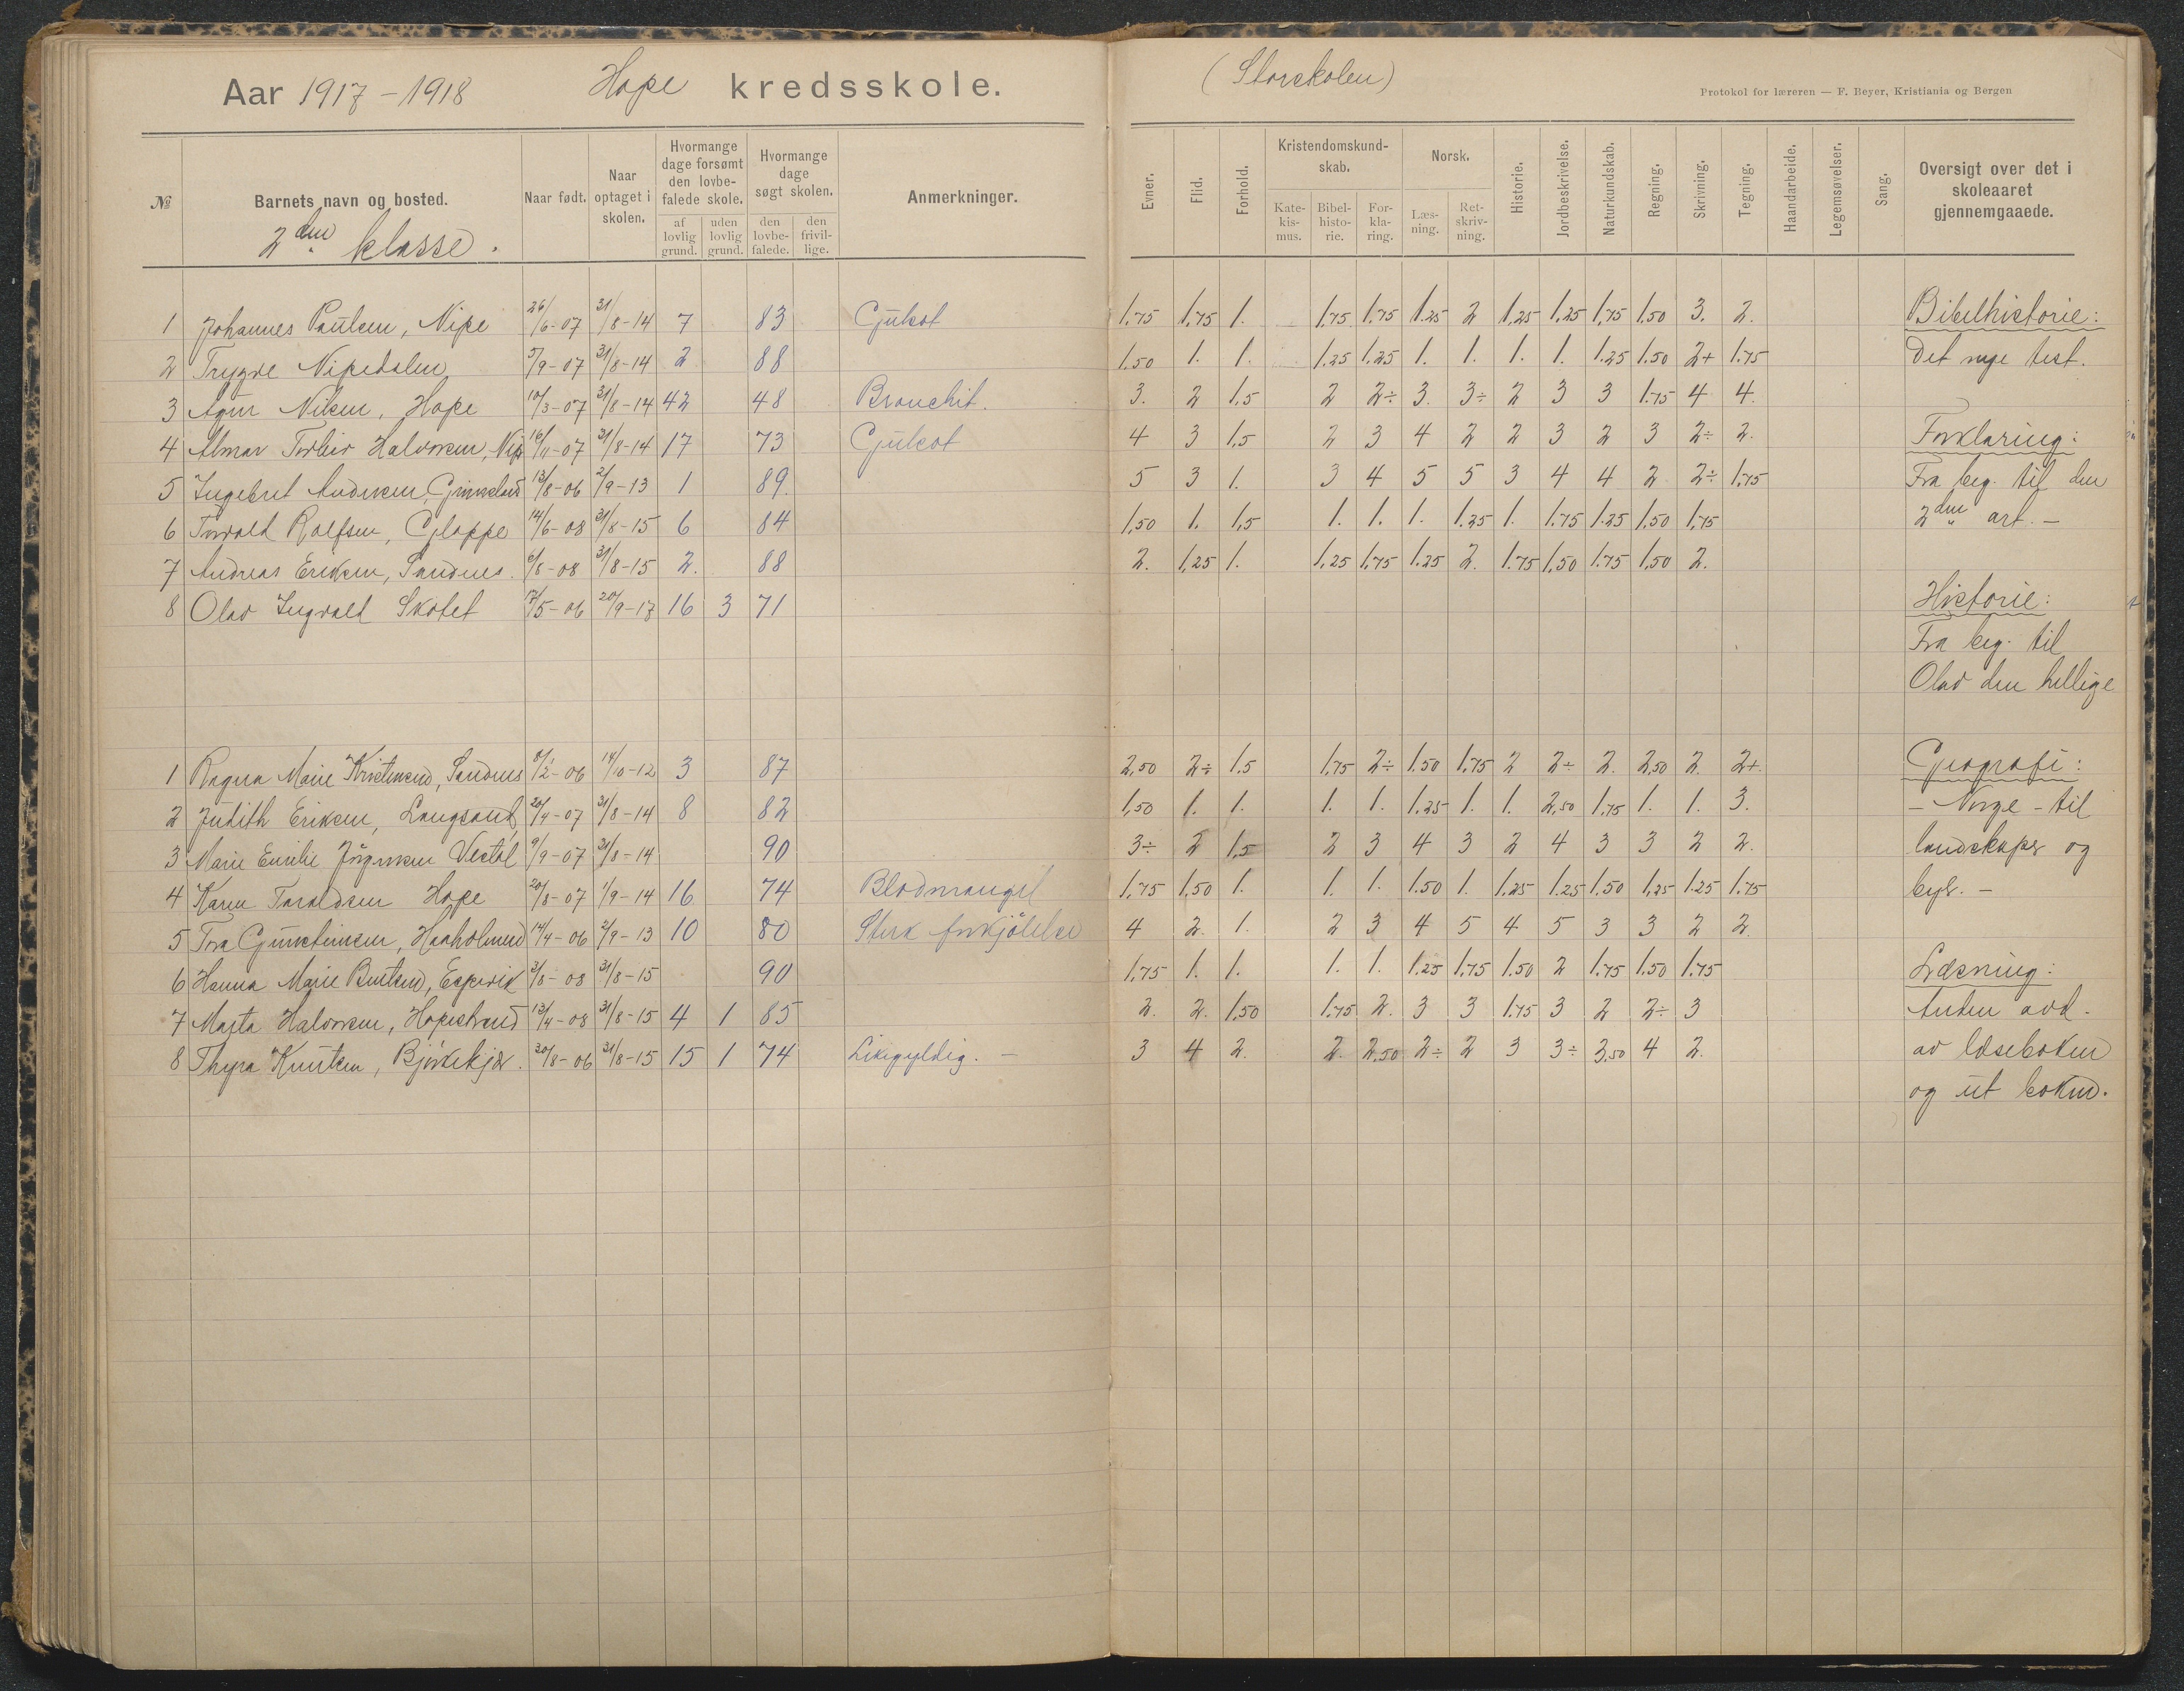 Aar 1917-1918 Hope kredsskole.
(Storskolen)
Protokol for læreren — F. Beyer, Kristiania og Bergen
№ Barnets navn og bosted. Naar født. Naar optaget i skolen. Hvormange dage forsømt den lovbefalede skole. af lovlig grund. uden lovlig grund. Hvormange dage søgt skolen. den lovbefalede. den frivillige. Anmerkninger.
Evner. Flid. Forhold. Kristendomskundskab. Katekismus. Bibelhistorie. Forklaring. Norsk. Læsning. Retskrivning. Historie. Jordbeskrivelse. Naturkundskab. Regning. Skrivning. Tegning. Haandarbeide. Legemsøvelser. Sang. Oversigt over det i skoleaaret gjennemgaaede.
2den klasse.
1 Johannes Paulsen, Nipe 26/6-07 31/8-14 7 83 Gulsot 1.75 1.75 1. 1.75 1.75 1.25 2 1.25 1.25 1.75 1.50 3. 2. Bibelhistorie:
2 Trygve Nipedalen 5/9-07 31/8-14 2 88 1.50 1. 1. 1.25 1.25 1. 1. 1. 1. 1.25 1.50 2+ 1.75 Det nye test.
3 Nilsen, Hope 10/3-07 31/8-14 42 48 Bronchit. 3. 2 1,5 2 2÷ 3. 3÷ 2 3 3 1.75 4 4.
4 Halvorsen, Nipe 16/11-07 31/8-14 17 73 Gulsot 4 3 1,5 2 3 4 2 2 3 2 3 2÷ 2. Forklaring:
5 Ingebret Andersen, Grimeland 13/8-06 2/9-13 1 89. 5 3 1. 3 4 5 5 3 4 4 2 2÷ 1.75 Fra beg. til den
6 Torvald Rolfsen, Gloppe 14/6-08 31/8-15 6 84 1,50 1. 1,5 1. 1. 1. 1.25 1. 1.75 1.25 1.50 1,75 2den art. -
7 Andreas Eriksen, Sandnes. 6/8-08 31/8-15 2. 88 2. 1,25 1. 1,25 1.75 1.25 2. 1.75 1,50 1.75 1,50 2.
8 Olav Ingvald Skotet 17/5-06 20/9-17 16 3 71 Historie:
Fra beg. til
Olav den hellige
1 Ragna Marie Kristensen, Sandnes 8/2-06 14/10-12 3 87 2,50 2÷ 1.5 1.75 2÷ 1.50 1.75 2 2÷ 2. 2,50 2. 2+. Geografi:
2 Judith Eriksen, Langsand 20/4-07 31/8-14 8 82 1,50 1. 1. 1. 1. 1.25 1. 1. 2,50 1.75 1. 1. 3. - Norge - til
3 Marie Emilie Jörgensen Vestöl 9/9-07 31/8-14 90 3÷ 2 1,5 2 3 4 3 2 4 3 3 2 2. landskaper og
4 Karen Taraldsen Hope 20/8-07 1/9-14 16 74 Blodmangel 1,75 1,50 1. 1. 1. 1.50 1. 1.25 1.25 1.50 1,25 1.25 1.75 byer. -
5 Tora Gunstensen, Haaholmen 14/4-06 2/9-13 10 80 Sterk forkjölelse 4 2. 1. 2 3 4 5 4 5 3 3 2 2.
6 Hanna Marie Berntsen, Espevik 3/8-08 31/8-15 90 1,75 1. 1. 1. 1. 1.25 1.75 1.50 2 1.75 1.50 1.75 Læsning:
7 Marta Halvorsen, Hopestrand 13/4-08 31/8-15 4 1 85 2. 2. 1,50 1.75 2. 3 3 1.75 3 2 2÷ 3 Anden avd.
8 Thyra Knutsen, Björkekjær. 30/8-06 31/8-15 15 1 74 Likegyldig. - 3 4 2. 2. 2,50 2÷ 2 3 3÷ 3,50 4 2. av læseboken
og ut boken.